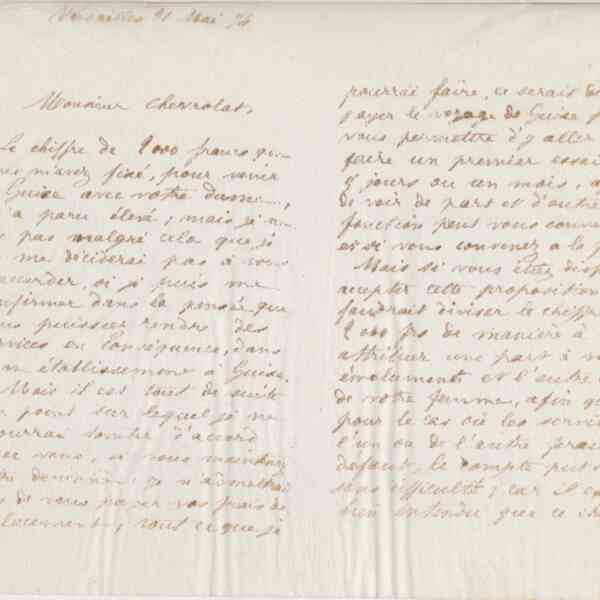 Versailles 21 Mai 74
Monsieur Chevrolat,
Le chiffre de 2000 francs que
m'avez fixé, pour venir
Guise avec votre dame,
a paru élevé; mais je ne
pas malgré cela que je
me déciderai pas à vous
accorder, si je puis me
confirmer dans la pensée que
vous puissiez rendre des
services en conséquence, dans
mon établissement à Guise.
Mais il est tout de suite
un point sur lequel je ne
pourrai tomber d'accord
avec vous, si vous maintenez
demande: je n'admettrai
de vous payer vos frais de
tout ce que je
pourrai faire, ce serait de
payer le voyage de Guise
vous permettre d'y aller
faire un premier essai
jours ou un mois,
de voir de part et d'autre
fonction peut vous convenir
et si vous convenez à la
Mais si vous étiez disposé
accepter cette proposition
faudrait diviser le chiffre
2000 frs de manière à
attribuer une part à vos
émoluments et l'autre
de votre femme, afin que
pour le cas où les services
l'un ou de l'autre feraient
défaut, le compte put
sans difficulté; car il est
bien entendu que ce